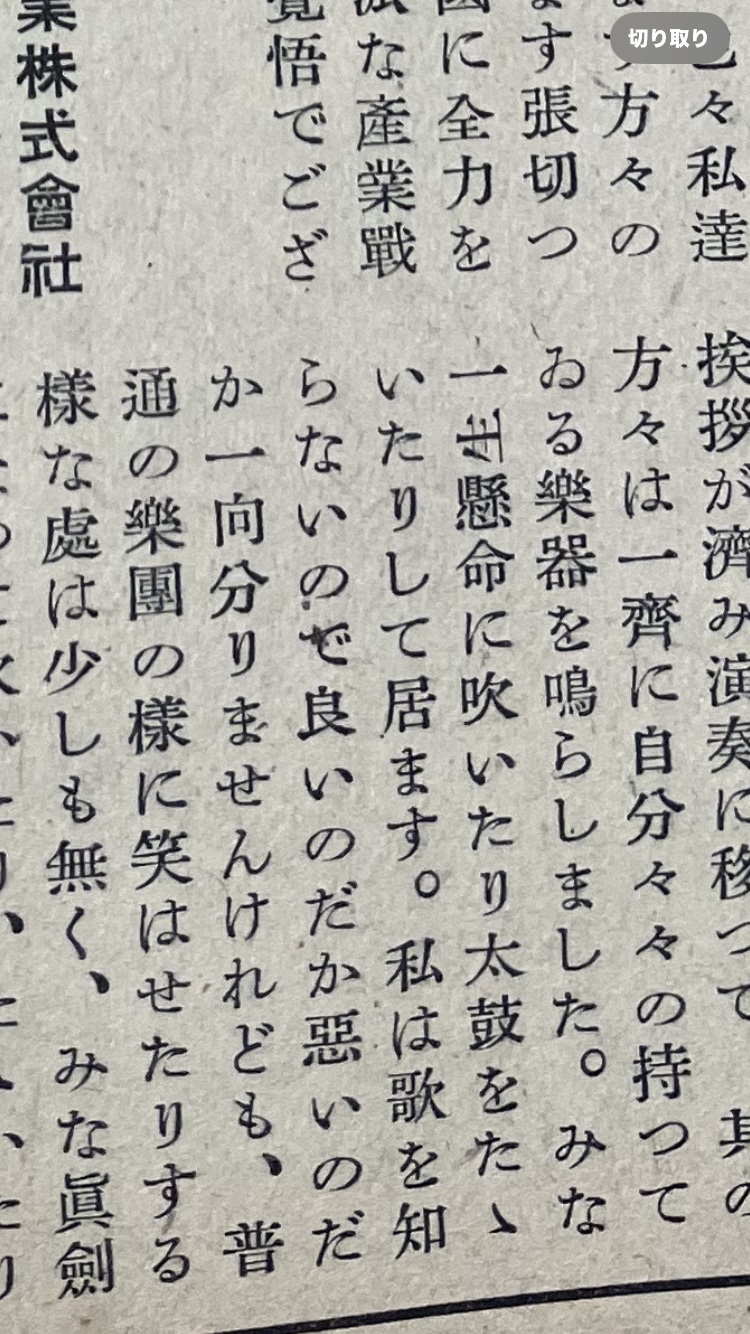 切り取り
々私達
方々の
す張切つ
に全力を
な産業戰
悟でござ
株式會社
挨拶が濟み演奏に移つて 其の
方々は一齊に自分々々の持つて
ゐる樂器を鳴らしました。みな
一生懸命に吹いたり太鼓をたゝ
いたりして居ます。私は歌を知
らないので良いのだか惡いのだ
か一向分りませんけれども、普
通の樂團の樣に笑はせたりする
樣な處は少しも無く、みな眞劍